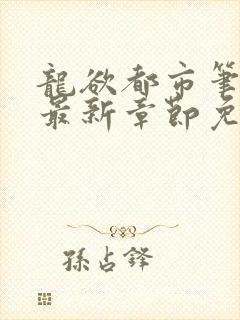 龍欲都市筆
最新章節免
孫占鋒